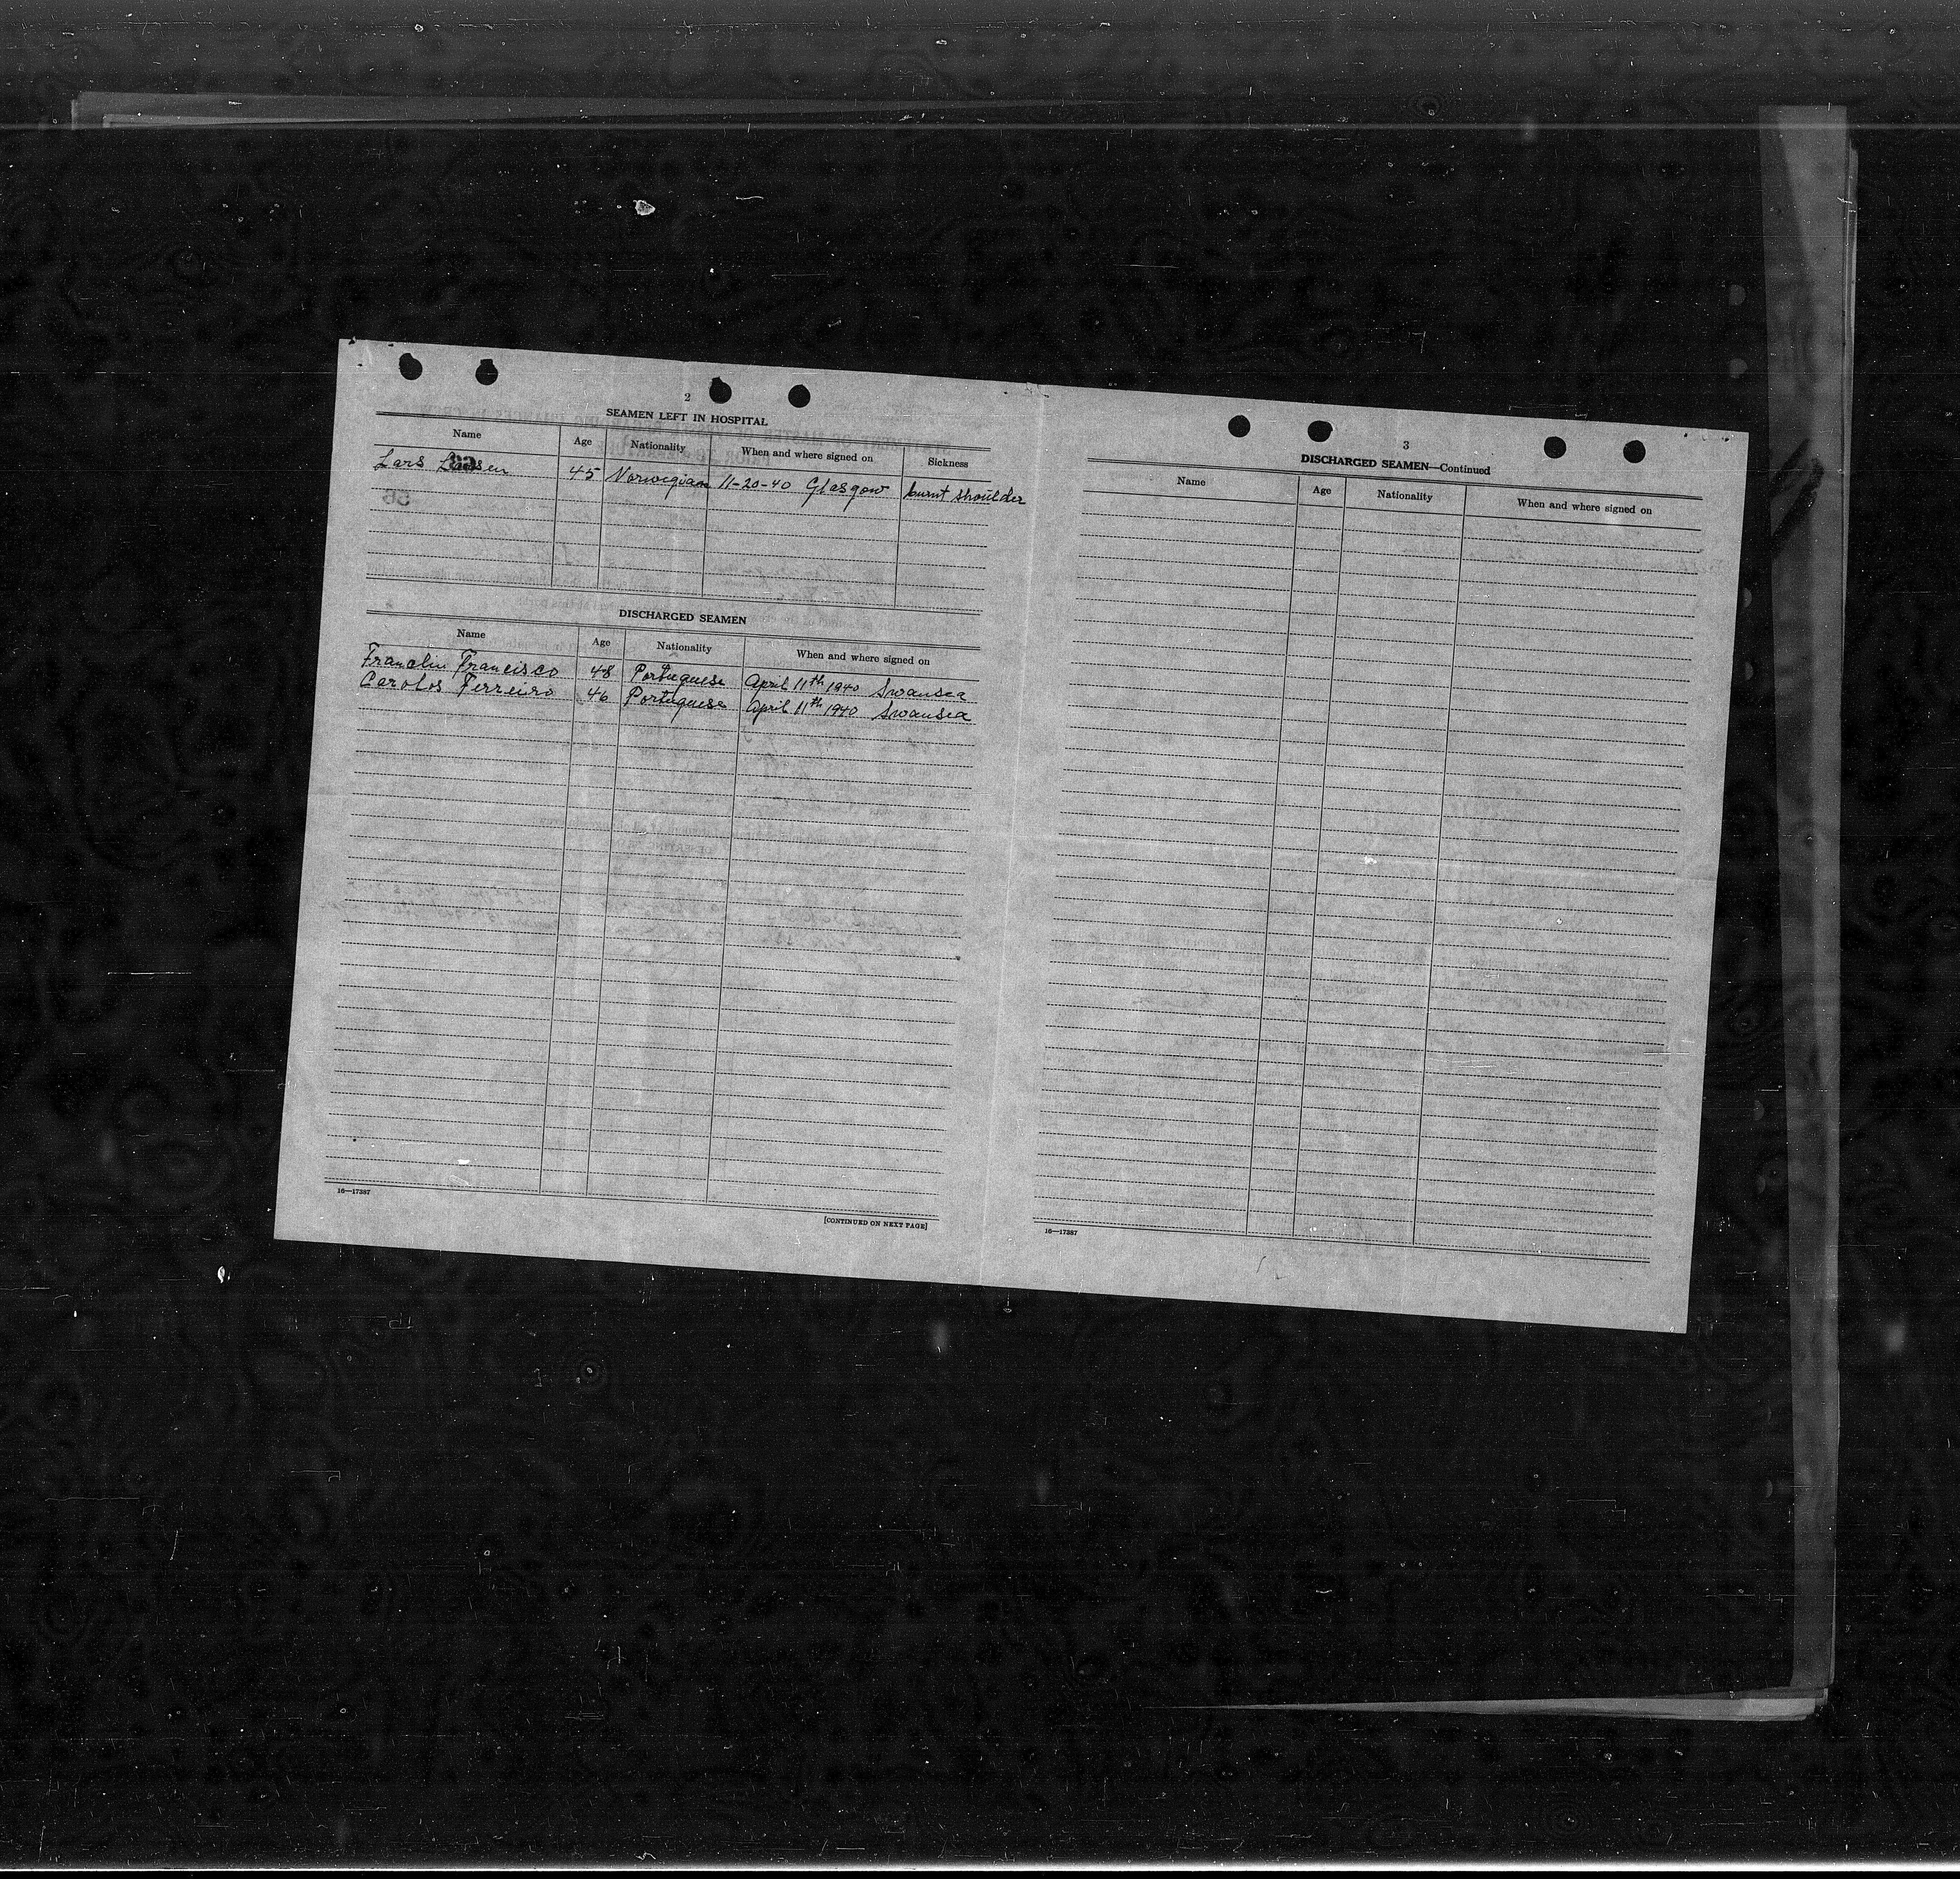 2
SEAMEN LEFT IN HOSPITAL
Name Age Nationality When and where signed on Sickness
Lars 45 Norwegian 11-20-40 Glasgow burnt shoulder
DISCHARGED SEAMEN
Name Age Nationality When and where signed on
Franclin Francisco 48 Portuguese April 11th 1940 Swansea
Carolos Ferreiro 46 Portuguese April 11th 1940 Swansea
16—17387
[CONTINUED ON NEXT PAGE]
3
DISCHARGED SEAMEN—Continued
Name Age Nationality When and where signed on
16—17387